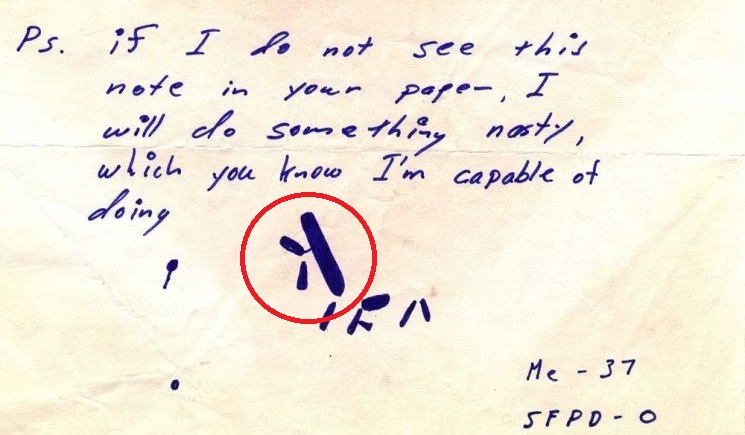 Ps. if I do not see this
note in your paper, I
will do something nasty,
which you know I'm capable of
doing
Me - 37
SFPD - 0